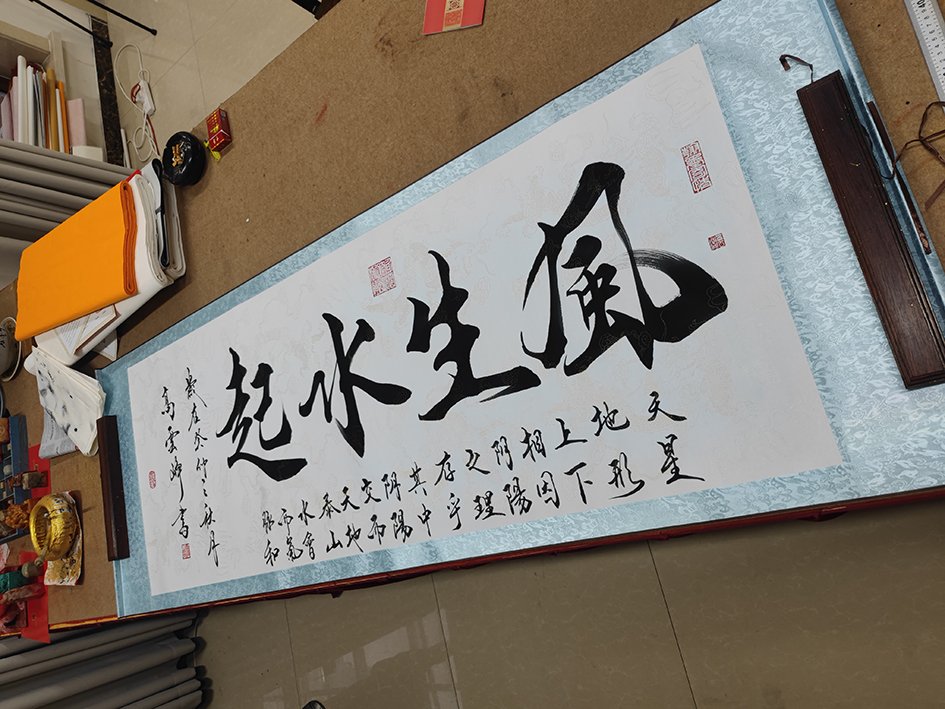 風生水起
天星
地形
上下
相因
阴陽
之理
存乎
其中
阴陽
交而
天地
泰山
水會
而氣
脈和
歲在癸卯之秋月
高雲峰書